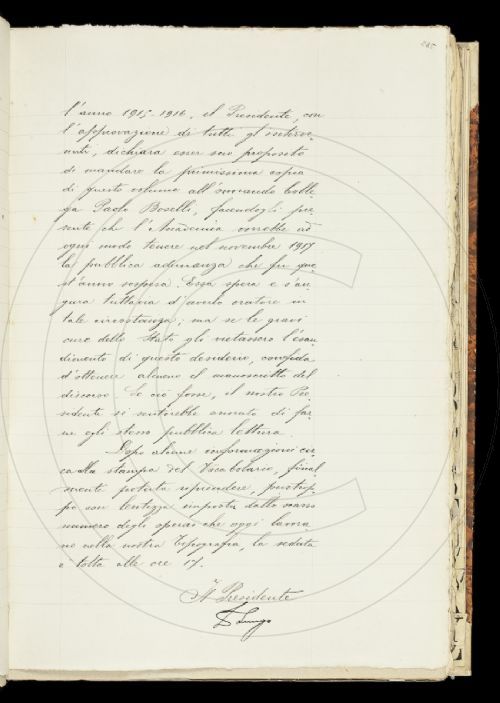 l'anno 1915-1916, il Presidente, con
l'approvazione di tutti gl' interve-
nuti, dichiara esser suo proposito
di mandare la primissima copia
di questo volume all'onorando Colle-
ga Paolo Boselli, facendogli pre-
sente che l'Accademia vorrebbe ad
ogni modo tenere nel novembre 1917
la pubblica adunanza che fu que-
st'anno sospesa. Essa spera e s'au-
gura tuttavia d'averlo oratore in
tale circostanza; ma se le gravi
cure dello Stato gli vietassero l'esau-
dimento di questo desiderio, confida
d'ottenere almeno il manoscritto del
discorso. Se ciò fosse, il nostro Pre-
sidente si sentirebbe onorato di far-
ne egli stesso pubblica lettura.
Dopo alcune informazioni cir-
ca alla stampa del Vocabolario, final-
mente potuta riprendere, purtrop-
po con lentezza imposta dallo scarso
numero degli operai che oggi lavora-
no nella nostra Tipografia, la seduta
è tolta alle ore 17.
Il Presidente